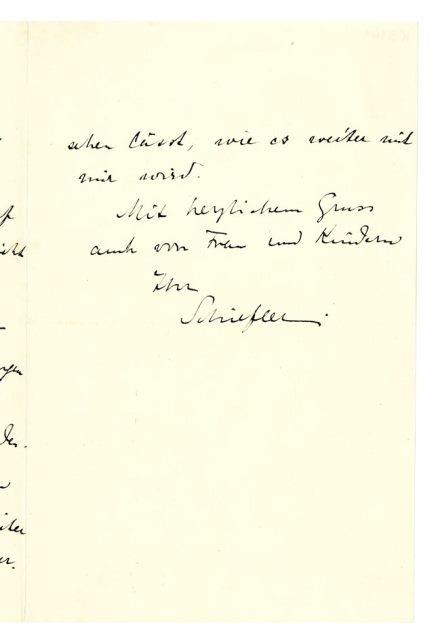 sehen lässt, wie es weiter mit
mir wird.
Mit herzlichem Gruss
auch von Frau und Kindern
Ihr
Schiefler.